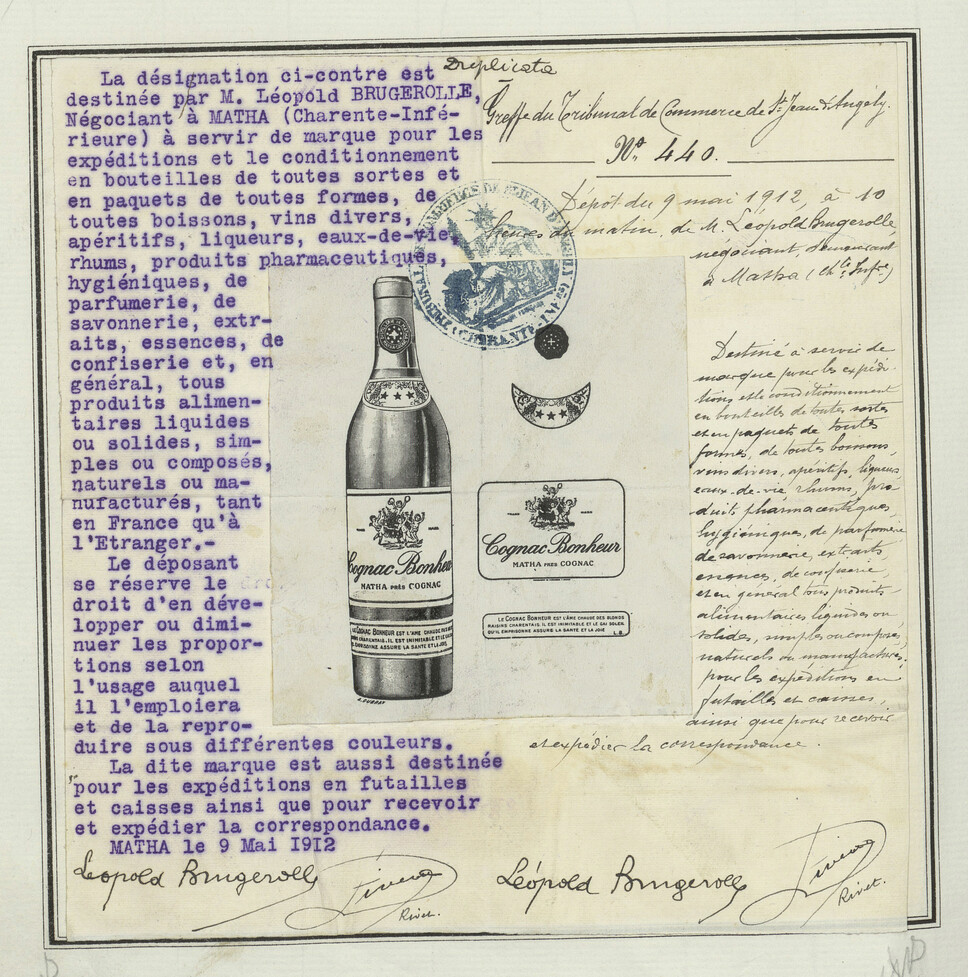 La désignation ci-contre est
destinée par M. Léopold BRUGEROLLE,
Négociant à MATHA (Charente-Infé-
rieure) à servir de marque pour les
expéditions et le conditionnement
en bouteilles de toutes sortes et
en paquets de toutes formes, de
toutes boissons, vins divers,
apéritifs, liqueurs, eaux-de-vie,
rhums, produits pharmaceutiques,
hygiéniques, de
parfumerie, de
savonnerie, extr-
aits, essences, de
confiserie et, en
général, tous
produits alimen-
taires liquides
ou solides, sim-
ples ou composés,
naturels ou ma-
nufacturés, tant
en France qu'à
l'Etranger.-
Le déposant
se réserve le
droit d'en déve-
lopper ou dimi-
nuer les propor-
tions selon
l'usage auquel
il l'emploiera
et de la repro-
duire sous différentes couleurs.
La dite marque est aussi destinée
pour les expéditions en futailles
et caisses ainsi que pour recevoir
et expédier la correspondance.
MATHA le 9 Mai I9I2
Léopold Brugerolle
Rivet.
Duplicata
Greffe du Tribunal de Commerce de St Jean d'Angély.
No 440.
Dépôt du 9 mai 1912, à 10
heures du matin, de M. Léopold Brugerolle,
négociant, demeurant
à Matha (Chte Infre)
Destiné à servir de
marque pour les expédi-
tions et le conditionnement
en bouteilles de toutes sortes
et en paquets de toutes
formes, de toutes boissons,
vins divers, apéritifs, liqueurs
eaux-de-vie rhums, pro-
duits pharmaceutiques,
hygiéniques, de parfumerie
de savonnerie, extraits,
essences, de confiserie,
et en général tous produits
alimentaires liquides ou
solides, simples ou composés,
naturels ou manufacturés,
pour les expéditions en
futailles et caisses,
ainsi que pour recevoir
et expédier la correspondance.
Léopold Brugerolle
Rivet.
Cognac Bonheur
MATHA PRÈS COGNAC
LE COGNAC BONHEUR EST L'ÂME CHAUDE DES BLONDS
RAISINS CHARENTAIS. IL EST INIMITABLE ET LE GAI SOLEIL
QU'IL EMPRISONNE ASSURE LA SANTÉ ET LA JOIE L.B.
TRADE MARK
Cognac Bonheur
MATHA PRÈS COGNAC